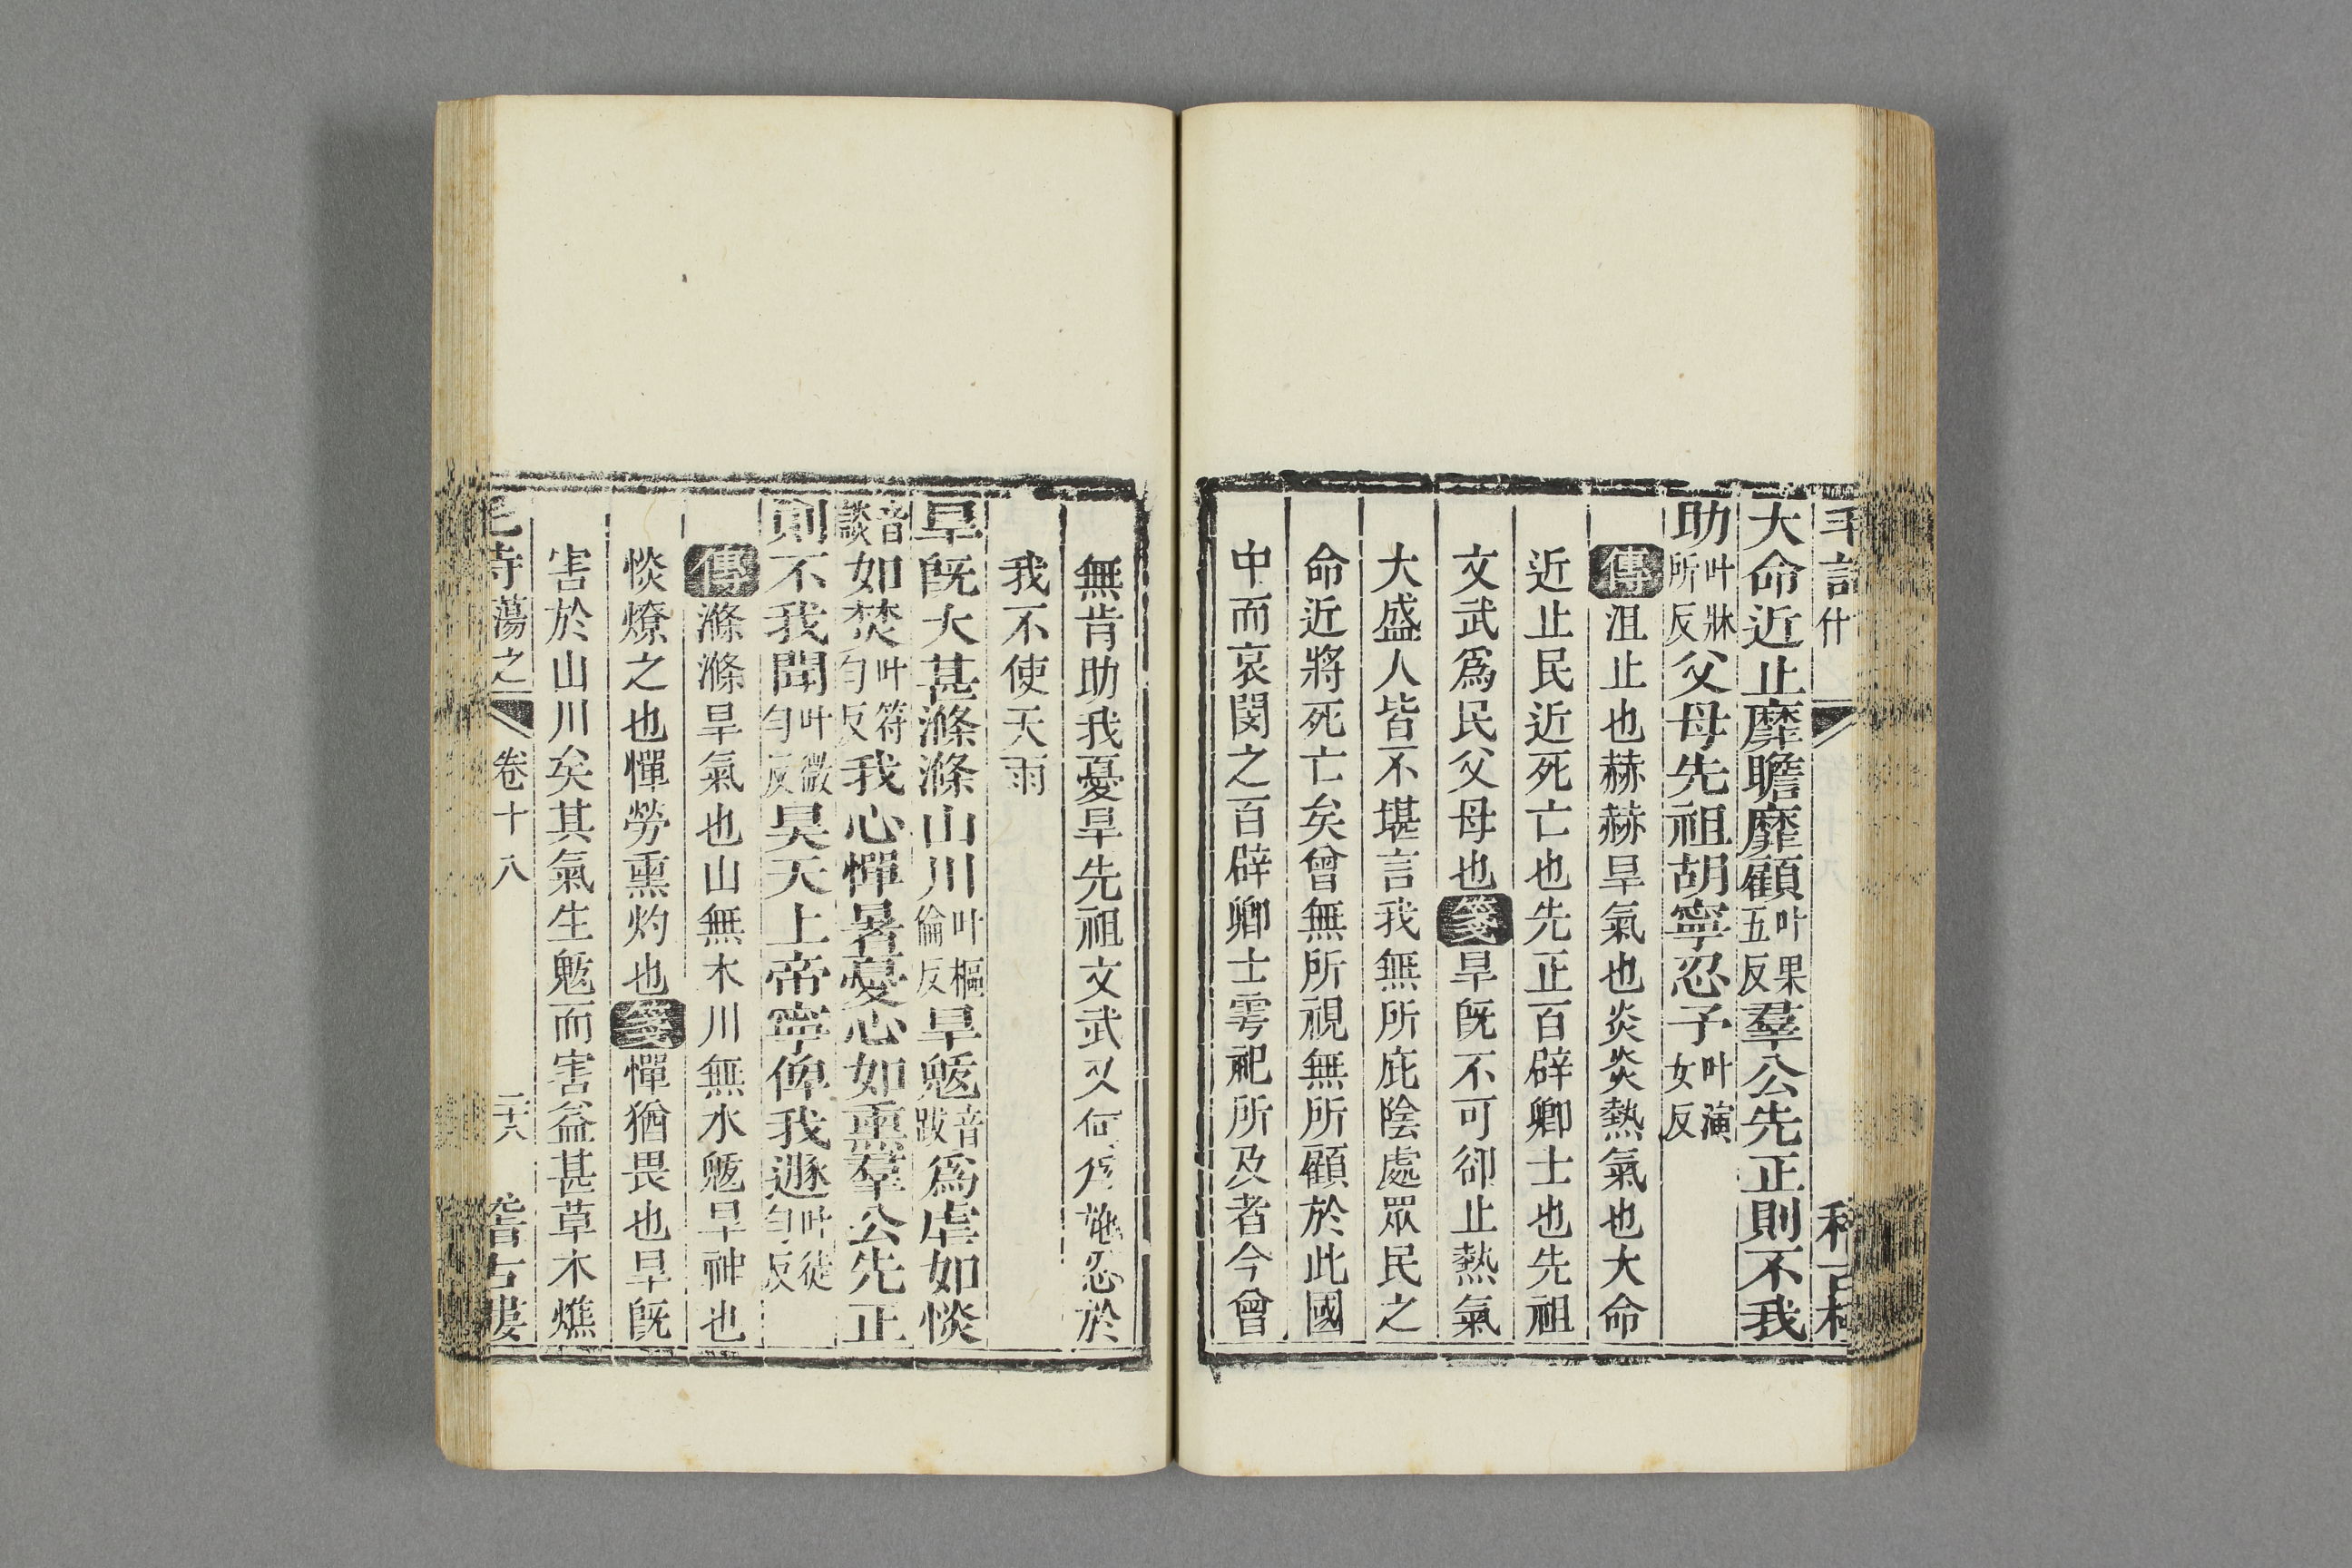 大命近止靡瞻靡顧叶果五反羣公先正則不我
助叶牀所反父母先祖胡寧忍予叶演女反
傳沮止也赫赫旱氣也炎炎熱氣也大命
近止民近死亡也先正百辟卿士也先祖
文武爲民父母也箋旱旣不可卻止熱氣
大盛人皆不堪言我無所庇陰處眾民之
命近將死亡矣曾無所視無所顧於此國
中而哀閔之百辟卿士雩祀所及者今曾
無肯助我憂旱先祖文武又何爲施忍於
我不使天雨
旱旣大甚滌滌山川叶樞倫反旱魃音跋爲虐如惔
音談如焚叶符勻反我心憚暑憂心如熏羣公先正
則不我聞叶微勻反昊天上帝寧俾我遯叶徒勻反
傳滌滌旱氣也山無木川無水魃旱神也
惔燎之也憚勞熏灼也箋憚猶畏也旱旣
害於山川矣其氣生魃而害益甚草木燋
毛詩蕩之 卷十八 二十八 稽古樓